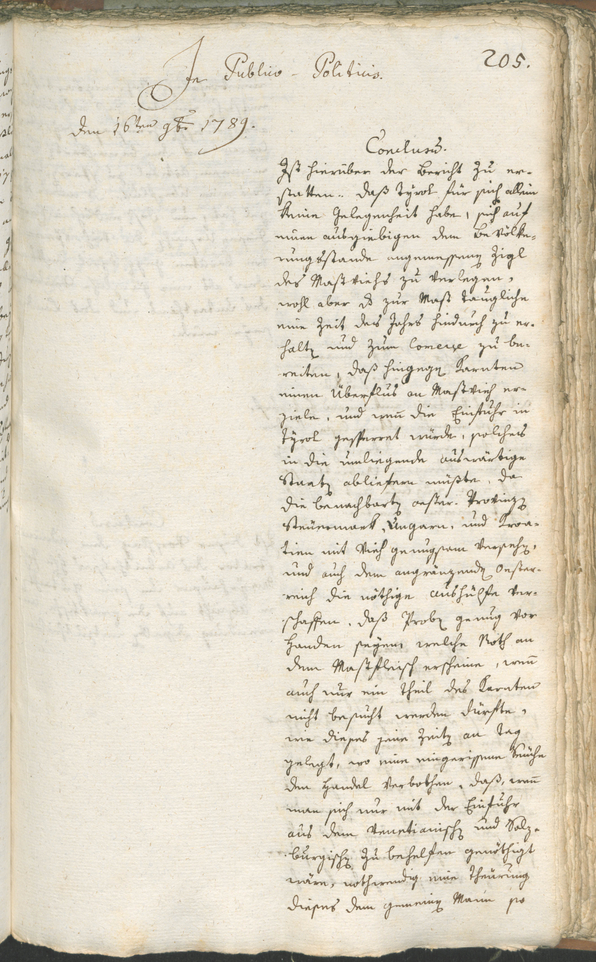 205.
In Publico-Politicis.
den 16ten 9br. 1789.
Conclusum.
Ist hierüber der Bericht zu er-
statten. daß Tyrol für sich allein
keine Gelegenheit habe, sich auf
einen ausgiebigen dem Bevölke-
rungsstande angemessenen Zigl
des Mastviehs zu verlegen,
wohl aber zur Mast taugliche
eine Zeit des Jahrs hindurch zu er-
halten und zum Comerze zu be-
reiten, daß hingegen Karnten
einen Überfluß an Mastvieh er-
ziele, und wenn die Einfuhr in
Tyrol gesperret würde, solches
in die umliegende auswärtige
Staaten abliefern müßte, da
die benachbarten oester. Provinzen
Steuermark, Ungarn, und Kroa-
tien mit Vieh genugsam versehen,
und auch dem angränzenden Oester-
reich die nöthige Aushülfe ver-
schaffen, daß Proben genug vor
Handen seyen, welche Noth an
dem Mastfleisch erscheine, wenn
auch nur ein Theil des Karnten
nicht besucht werden dürfte,
wie dieses jene Zeiten an Tag
gelegt, wo eine eingerissene Seuche
den Handel verbothen, daß, wenn
man sich nur mit der Einfuhr
aus dem Venetianischen und Salz-
burgischen zu behelfen genöthigt
wäre, nothwendig eine Theurung
dieses dem gemeinen Mann so